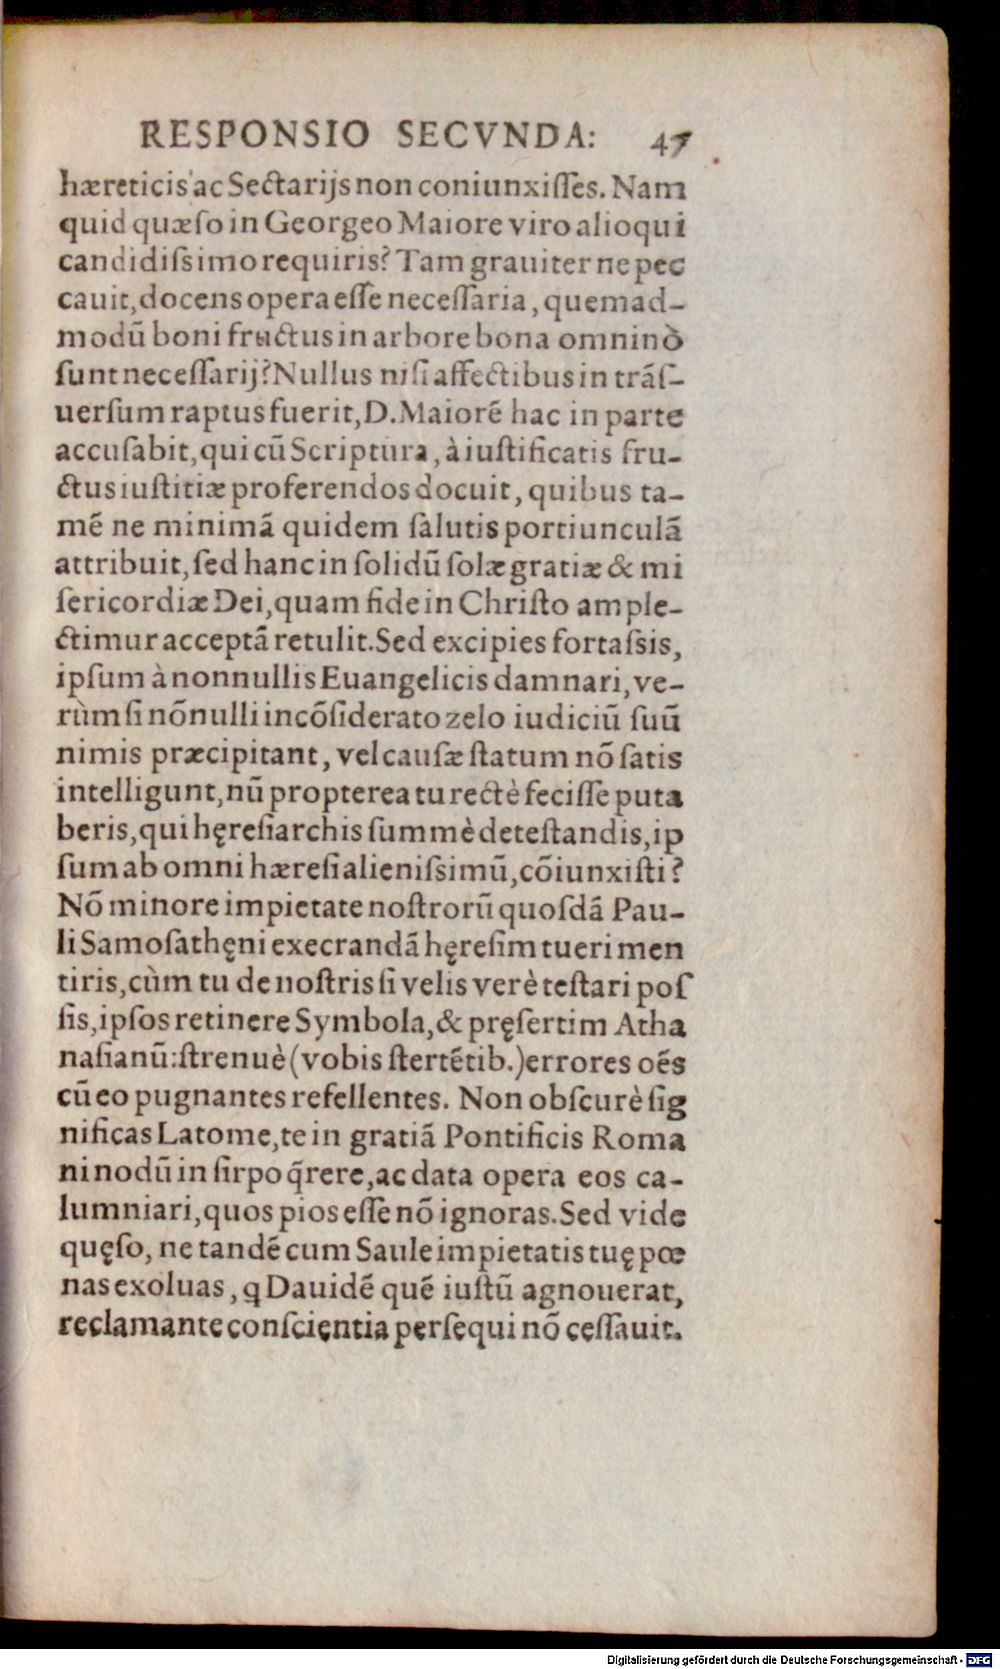 RESPONSIO SECVNDA: 47
hæreticis ac Sectarijs non coniunxiſſes. Nam
quid quæſo in Georgeo Maiore viro alioqui
candidiſsimo requiris? Tam grauiter ne pec
cauit, docens opera eſſe neceſſaria, quemad-
modū boni fructus in arbore bona omninò
ſunt neceſſarij? Nullus niſi affectibus in trāſ-
uerſum raptus fuerit, D. Maiorē hac in parte
accuſabit, qui cū Scriptura, à iuſtificatis fru-
ctus iuſtitiæ proferendos docuit, quibus ta-
mē ne minimā quidem ſalutis portiunculā
attribuit, ſed hanc in ſolidū ſolæ gratiæ & mi
ſericordiæ Dei, quam fide in Chriſto ample-
ctimur acceptā retulit. Sed excipies fortaſsis,
ipſum à nonnullis Euangelicis damnari, ve-
rùm ſi nōnulli incōſiderato zelo iudiciū ſuū
nimis præcipitant, vel cauſæ ſtatum nō ſatis
intelligunt, nū propterea tu rectè feciſſe puta
beris, qui hęreſiarchis ſummè deteſtandis, ip
ſum ab omni hæreſi alieniſsimū, cōiunxiſti?
Nō minore impietate noſtrorū quoſdā Pau-
li Samoſathęni execrandā hęreſim tueri men
tiris, cùm tu de noſtris ſi velis verè teſtari poſ
ſis, ipſos retinere Symbola, & pręſertim Atha
naſianū: ſtrenuè (vobis ſtertētib.) errores oēs
cū eo pugnantes refellentes. Non obſcurè ſig
nificas Latome, te in gratiā Pontificis Roma
ni nodū in ſirpo q̄rere, ac data opera eos ca-
lumniari, quos pios eſſe nō ignoras. Sed vide
quęſo, ne tandē cum Saule impietatis tuę pœ
nas exoluas, ꝙ Dauidē quē iuſtū agnouerat,
reclamante conſcientia perſequi nō ceſſauit.
Digitalisierung gefördert durch die Deutsche Forschungsgemeinschaft - DFG